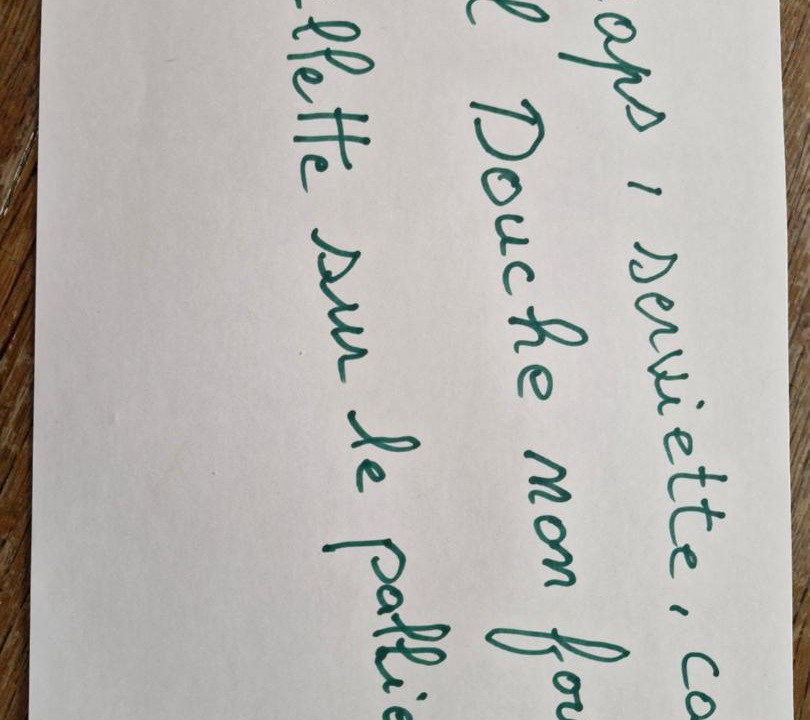 aps, serviette, ca
l Douche mon fou
llette sur le pallie